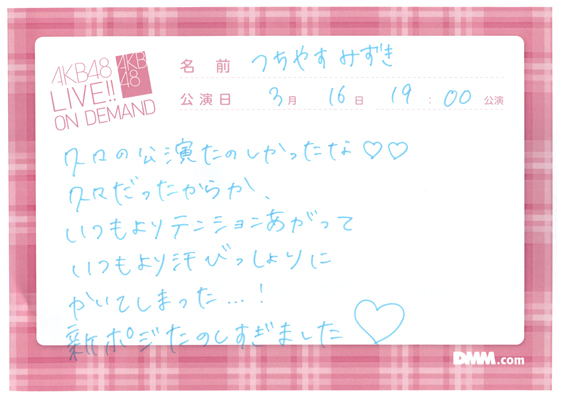 AKB48
LIVE!!
ON DEMAND
AKB
48
名前 つちやすみずき
公演日 3月 16日 19:00 公演
久々の公演たのしかったな♡♡
久々だったからか、
いつもよりテンションあがって
いつもより汗びっしょりに
かいてしまった…!
新ポジたのしすぎました♡
DMM.com